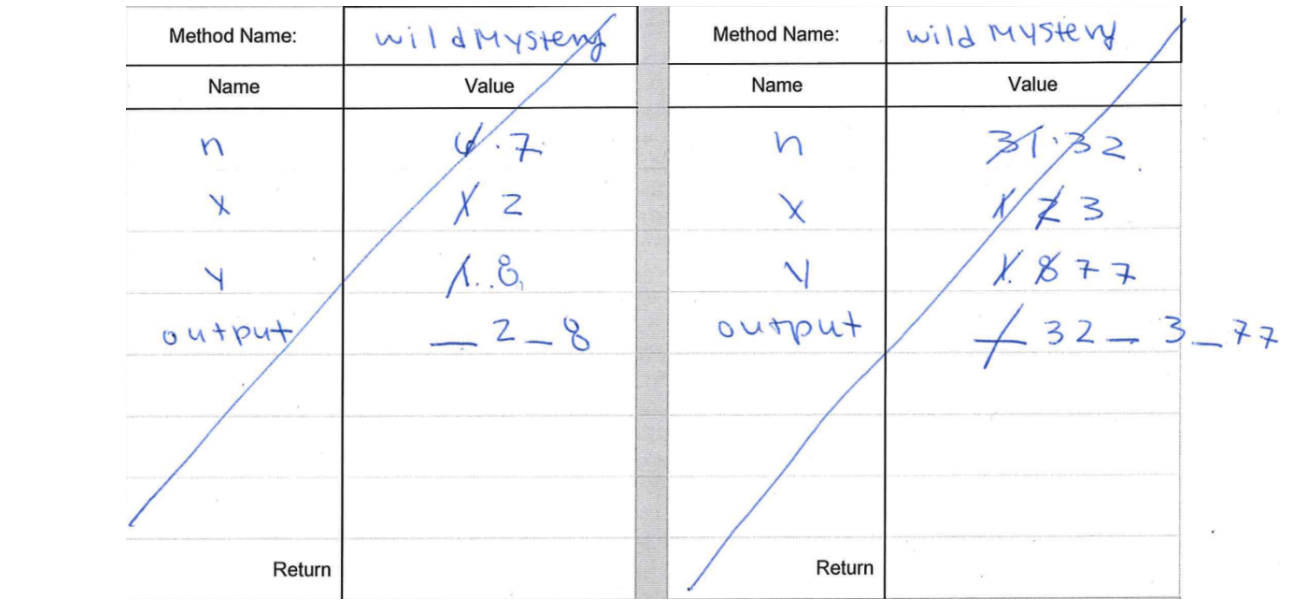 Method Name: wildMystery
Name Value
n 6 . 7
x 1 2
y 1 . . 8
output _ 2 _ 8
Return
Method Name: wild Mystery
Name Value
n 31 . 32
x 1 2 3
y 1 . 8 77
output _ 32 _ 3 _ 77
Return